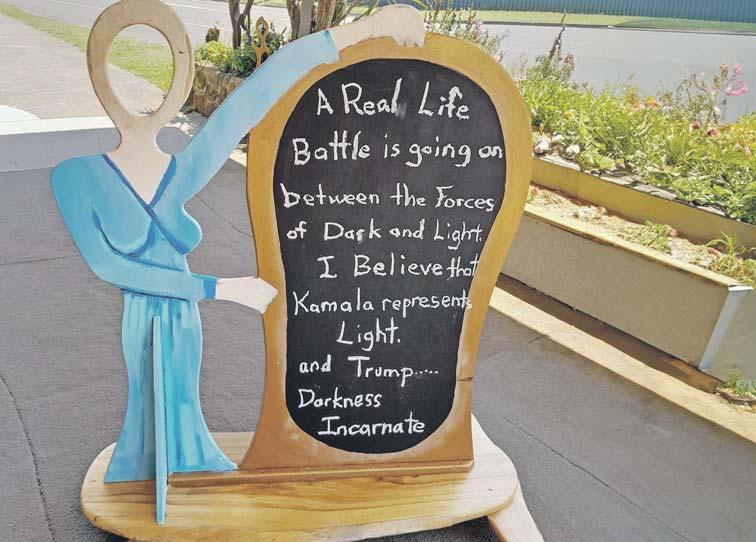 A Real Life
Battle is going on
between the Forces
of Dark and Light.
I Believe that
Kamala represents
Light.
and Trump.....
Darkness
Incarnate